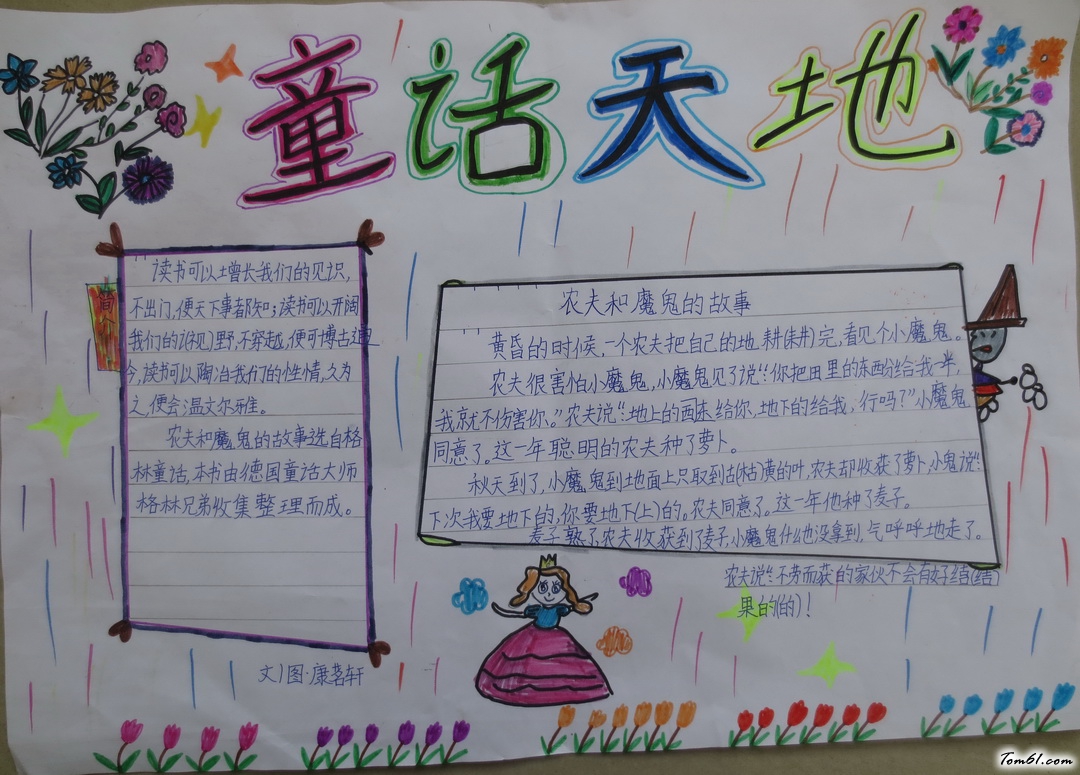 童话天地
简介
读书可以增长我们的见识,
不出门,便天下事都知;读书可以开阔
我们的(视)野,不穿越,便可博古通
今,读书可以陶冶我们的性情,久为
之,便会温文尔雅。
农夫和魔鬼的故事选自格
林童话,本书由德国童话大师
格林兄弟收集整理而成。
文/图·康茗轩
农夫和魔鬼的故事
黄昏的时候,一个农夫把自己的地耕(耕)完,看见个小魔鬼。
农夫很害怕小魔鬼,小魔鬼见了说:“你把田里的东西分给我一半,
我就不伤害你。”农夫说:“地上的西东给你,地下的给我,行吗?”小魔鬼
同意了。这一年聪明的农夫种了萝卜。
秋天到了,小魔鬼到地面上只取到古(枯)黄的叶,农夫却收获了萝卜,小鬼说:“
下次我要地下的,你要地下(上)的。农夫同意了。这一年他种了麦子。
麦子熟了,农夫收获到了麦子,小魔鬼什么也没拿到,气呼呼地走了。
农夫说:“不劳而获的家伙不会有好结(结)
果的(的)!
Tom61.com